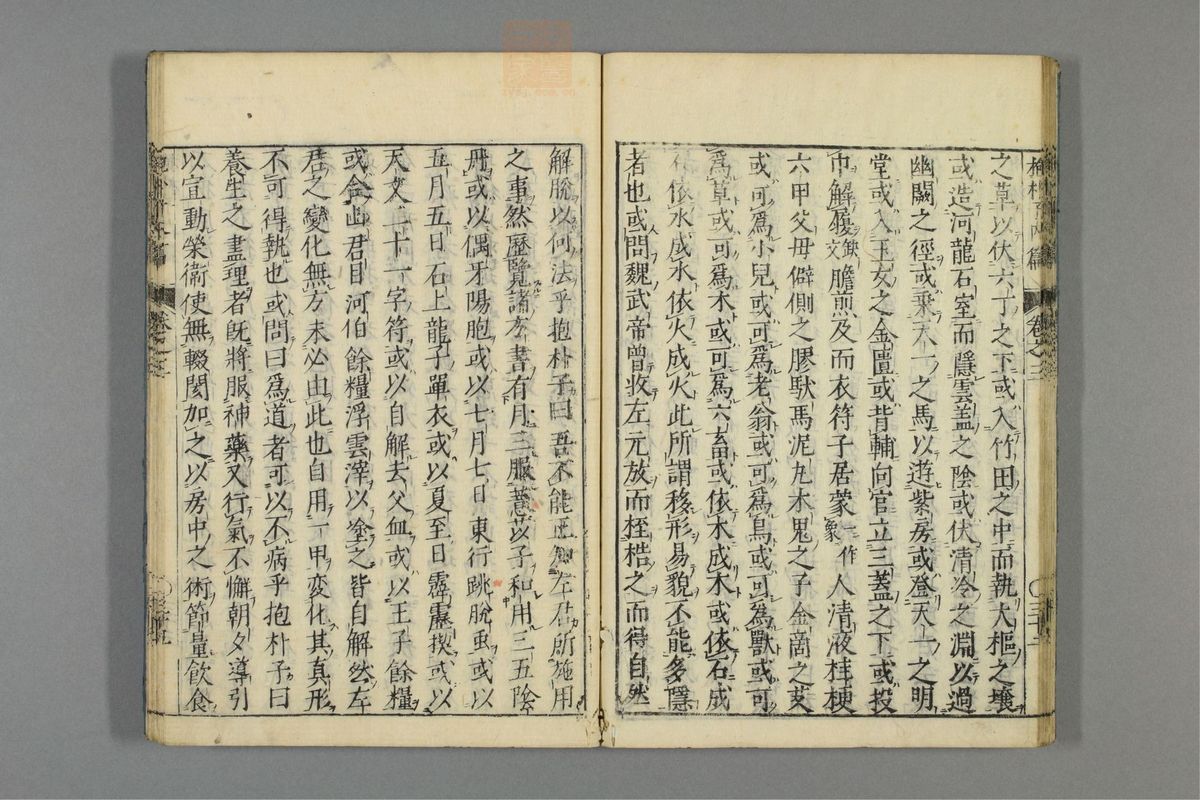 抱朴子内篇 卷之三
之草以伏六丁之下或入竹田之中而執大樞之壤
或造河龍石室而隱雲盖之陰或伏清冷之淵以過
幽闕之徑或乗天一之馬以遊紫房或登天一之明
堂或入玉女之金匱或背輔向官立三蓋之下或投
巾解履缺文膽煎及而衣符子居蒙象一作人清液桂梗
六甲父母僻側之膠駮馬泥丸木鬼之子金啇之芰
或可爲小兒或可爲老翁或可爲鳥或可爲獸或可
爲草或可爲木或可爲六畜或依木成木或依石成
石依水成水依火成火此所謂移形易貌不能多隱
者也或問魏武帝曽收左元放而桎梏之而得自然
解脫以何法乎抱朴子曰吾不能正知左君所施用
之事然歷覽諸方書有月三服薏苡子和用三五陰
丹或以偶牙陽胞或以七月七日東行跳脫虫或以
五月五日石上龍子單衣或以夏至日霹靂楔或以
天文二十一字符或以自解去父血或以玉子餘糧
或合山君目河伯餘糧浮雲滓以塗之皆自解然左
君之變化無方未必由此也自用六甲変化其真形
不可得執也或問曰爲道者可以不病乎抱朴子曰
養生之盡理者既將服神藥又行氣不懈朝夕導引
以宣動榮衛使無輟閡加之以房中之術節量飲食